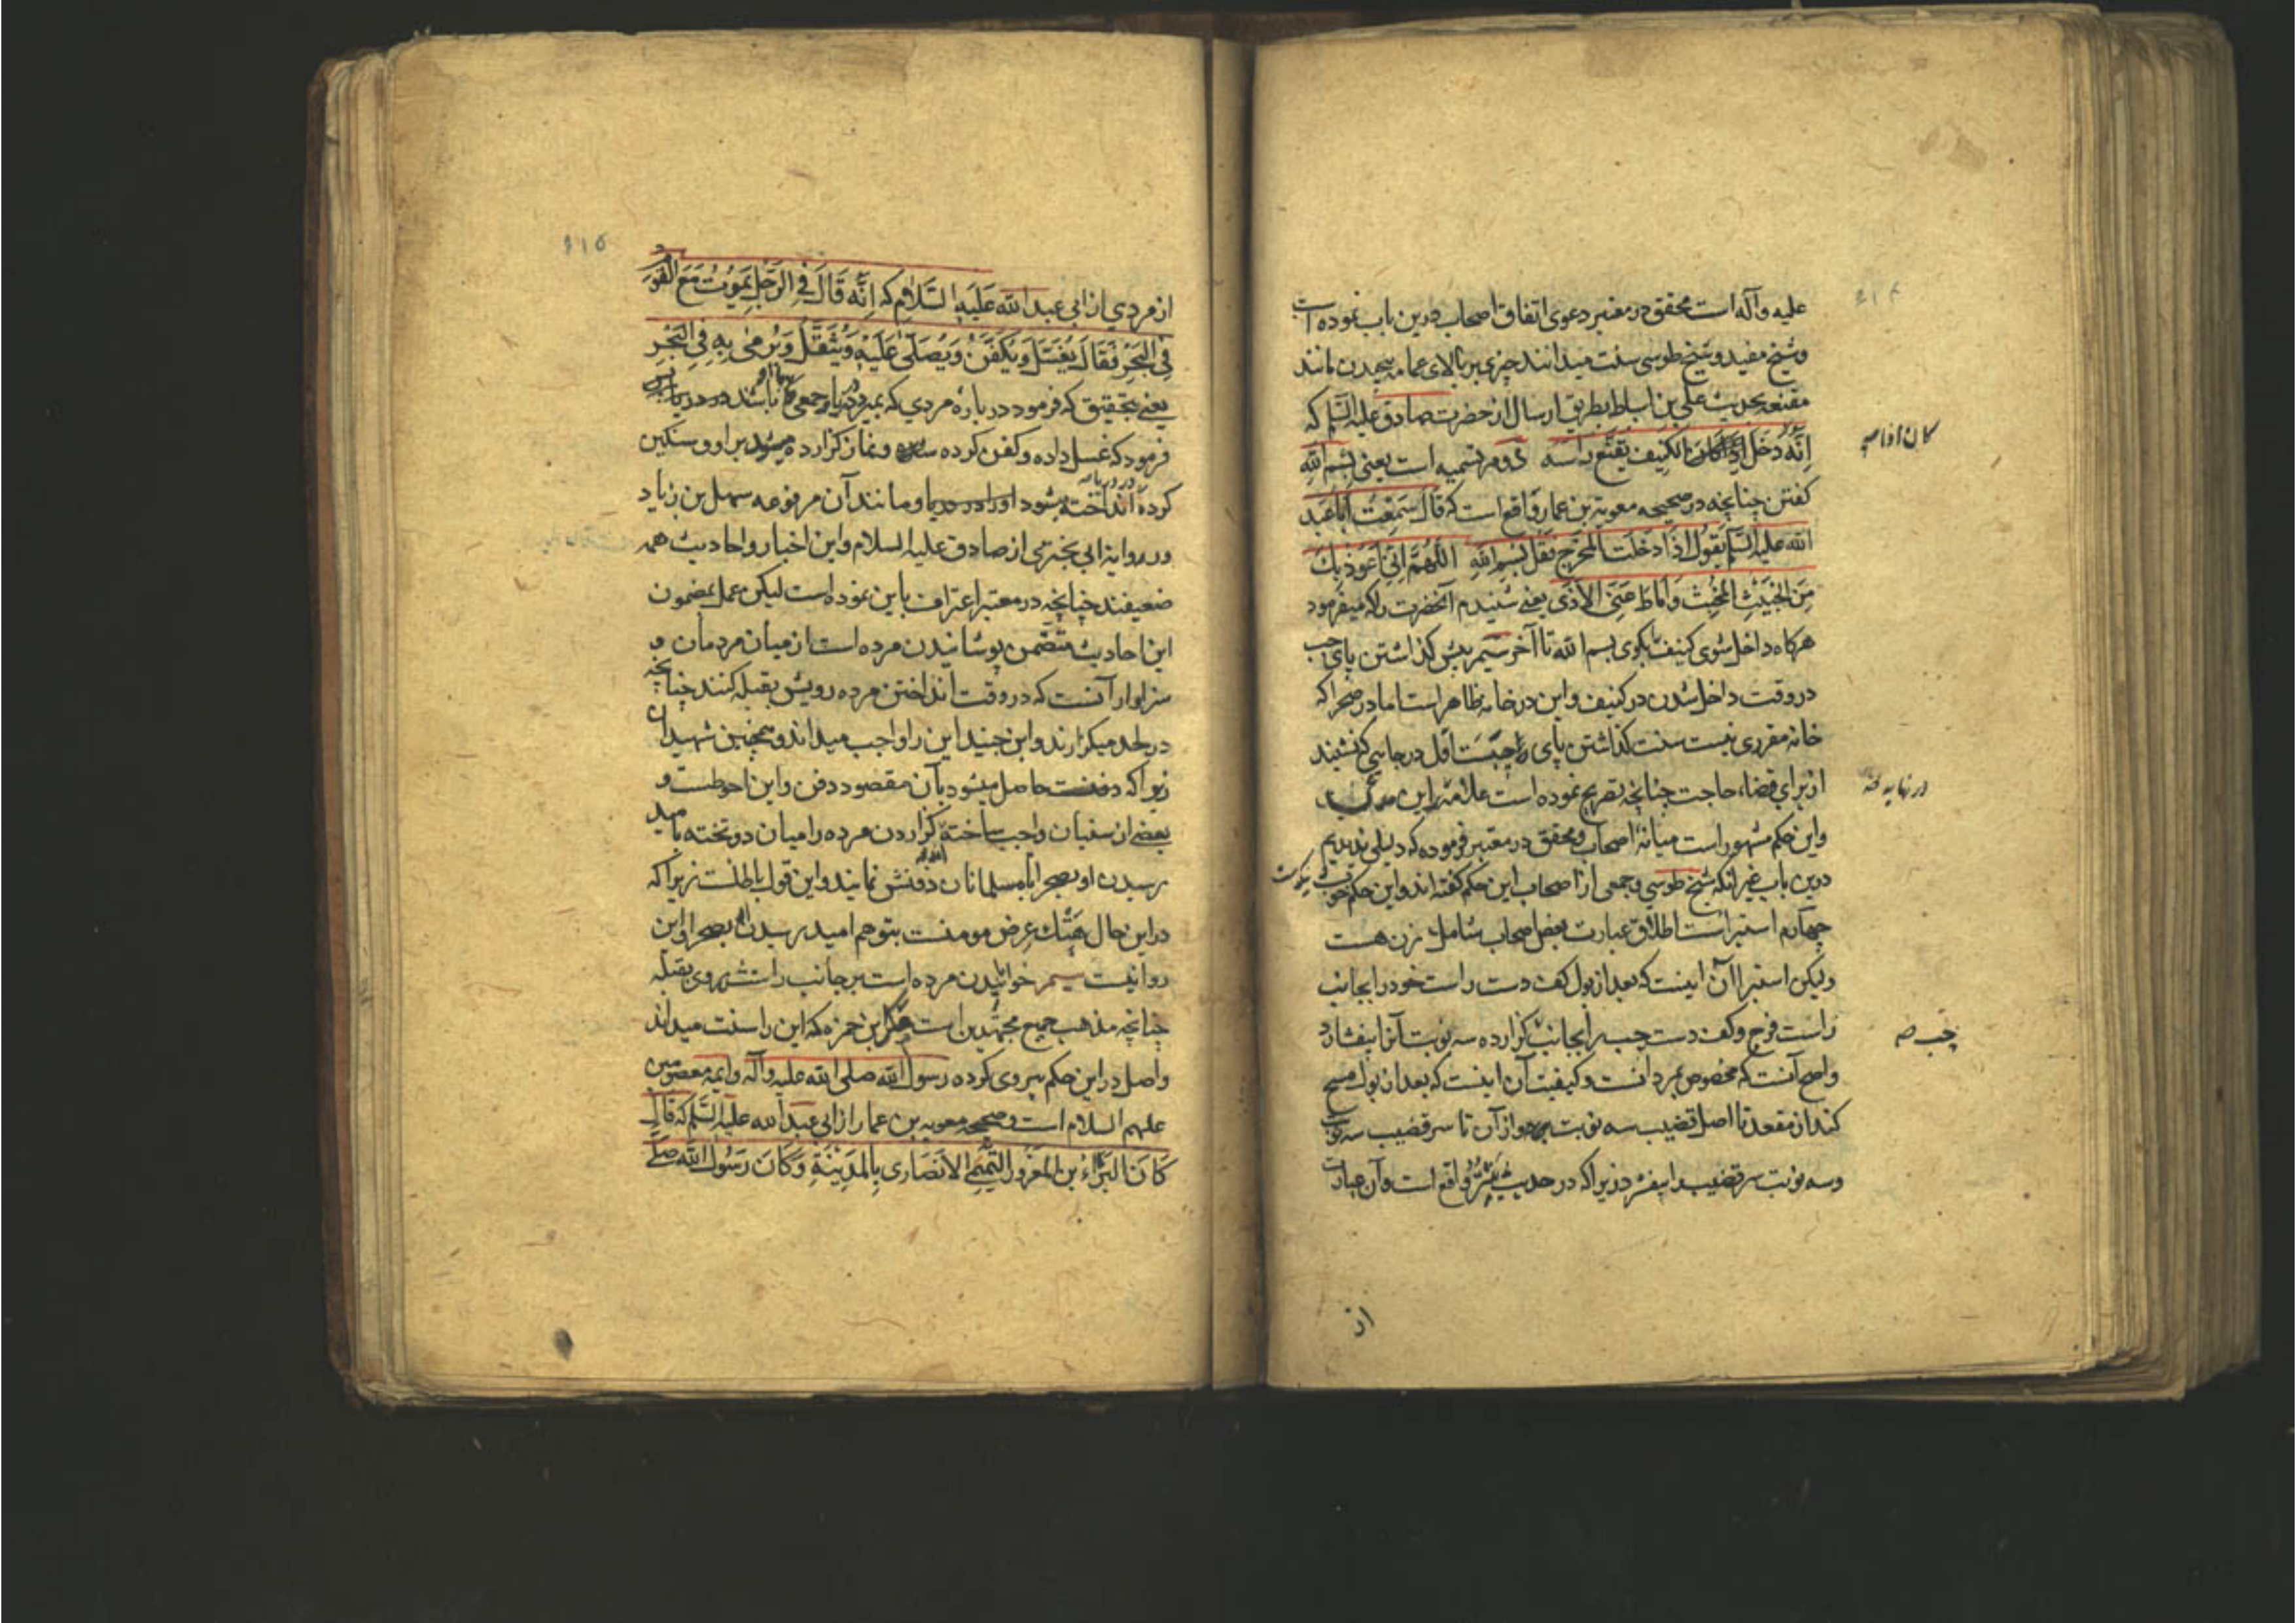 علیه و آله است محقق در معتبر دعوی اتفاق اصحاب درین باب نموده است
و شیخ مفید و شیخ طوسی سنت میدانند چیزی بر بالای عمامه پیچیدن مانند
مقنعه بحدیث علی بن اسباط بطریق ارسال از حضرت صادق علیه السلم که
اِنَّهُ دَخَلَ الکنیف یُقَنِّع رأسه دوم تسمیه است یعنی بسم الله
کان اذا صح
کفتن چنانچه در صحیحه معویه بن عمار واقع است که قالَ سَمِعْتُ اَبا عَبْد
الله علیه السلم یَقُولُ اِذا دَخَلْتَ المَخْرَجَ فَقُل بِسْمِ اللهِ اَللّهُمَّ اِنّی اَعُوذُ بِکَ
مِنَ الخَبیثِ المُخْبِثِ وَ اَمِطْ عَنِّی الأَذی یعنی شنیدم آنحضرت را که میفرمود
هرکاه داخل شوی کنیف را بکوی بسم الله تا آخر سیم پیش کذاشتن پای چپ
در وقت داخل شدن در کنیف و این در خانه ظاهر است اما در صحرا که
خانه مقرری نیست سنت کذاشتن پای چپست اول در جایی که نشیند
از برای قضاء حاجت چنانچه تصریح نموده است علامه این
در نهایه صح
و این حکم مشهور است میانهٔ اصحاب و محقق در معتبر فرموده که دلیلی ندیدیم
درین باب غیر آنکه شیخ طوسی و جمعی از اصحاب این حکم کفته اند و این حکم خوب
چهارم استبراست اطلاق عبارت بعض اصحاب شامل زن هست
ولیکن استبرا آن اینست که بعد از بول کف دست راست خود را بجانب
راست فرج و کف دست چپ را بجانب کزارده سه نوبت آنرا بیفشارد
چپ صح
و اصح آنست که مخصوص بمردانست و کیفیت آن اینست که بعد از بول مسح
کند از مقعد تا اصل قضیب سه نوبت و از آن تا سر قضیب سه نوبت
و سه نوبت سر قضیب را بیفشرد زیرا که در حدیث واقع است و آن عبارت
از
۶۱۵
از مردی از ابی عبد الله عَلَیهِ السَّلام که اِنَّهُ قَالَ فِی الرَّجُلِ یَمُوتُ مَعَ القَوْمِ
فِی البَحْرِ فَقَالَ یُغَسَّلُ وَ یُکَفَّنُ وَ یُصَلّی عَلَیْهِ وَ یُثَقَّلُ وَ یُرْمی بِهِ فِی البَحْرِ
یعنی بتحقیق که فرمود در بارهٔ مردی که بمیرد در دریا و جمعی باشند در دریا پس
فرمود که غسل داده و کفن کرده شده و نماز کزارده میشود بر او و سنکین
کرده انداخته بشود او را در دریا و مانند آن مرفوعه سهل بن زیاد
و روایة ابی بختری از صادق علیه السلام و این اخبار و احادیث همه
ضعیفند چنانچه در معتبر اعتراف باین نموده است لیکن عمل بمضمون
این احادیث متضمن پوشانیدن مرده است از میان مردمان و
سزاوار آنست که در وقت انداختن مرده رویش بقبله کنند چنانچه
در لحد میکزارند و ابن جنید این را واجب میداند و همچنین شهیدان
زیرا که دفنست حاصل میشود بآن مقصود دفن و این احوطست و
بعضی از سنیان واجب ساخته کزاردن مرده را میان دو تخته بامید
رسیدن او بصحرا تا مسلمانان دفنش نمایند و این قول باطلست زیرا که
در این حال هَتْک عِرض مومنست بتوهم امید رسیدن او بصحرا و این
روا نیست سیم خوابانیدن مرده است بر جانب راستش روی بقبله
چنانچه مذهب جمیع مجتهدین است مکر ابن حمزه که این را سنت میداند
و اصل در این حکم پیروی کرده رسول الله صلی الله علیه و آله و ایمه معصومین
علیهم السلام است و صحیحه معویه بن عمار از ابی عبد الله علیه السلم که قالَ
کَانَ البَرَّاءُ بن المَعْرُور التَّمیمی الاَنْصَاری بِالمَدینَةِ وَ کَانَ رَسُولُ اللهِ صَلَّی